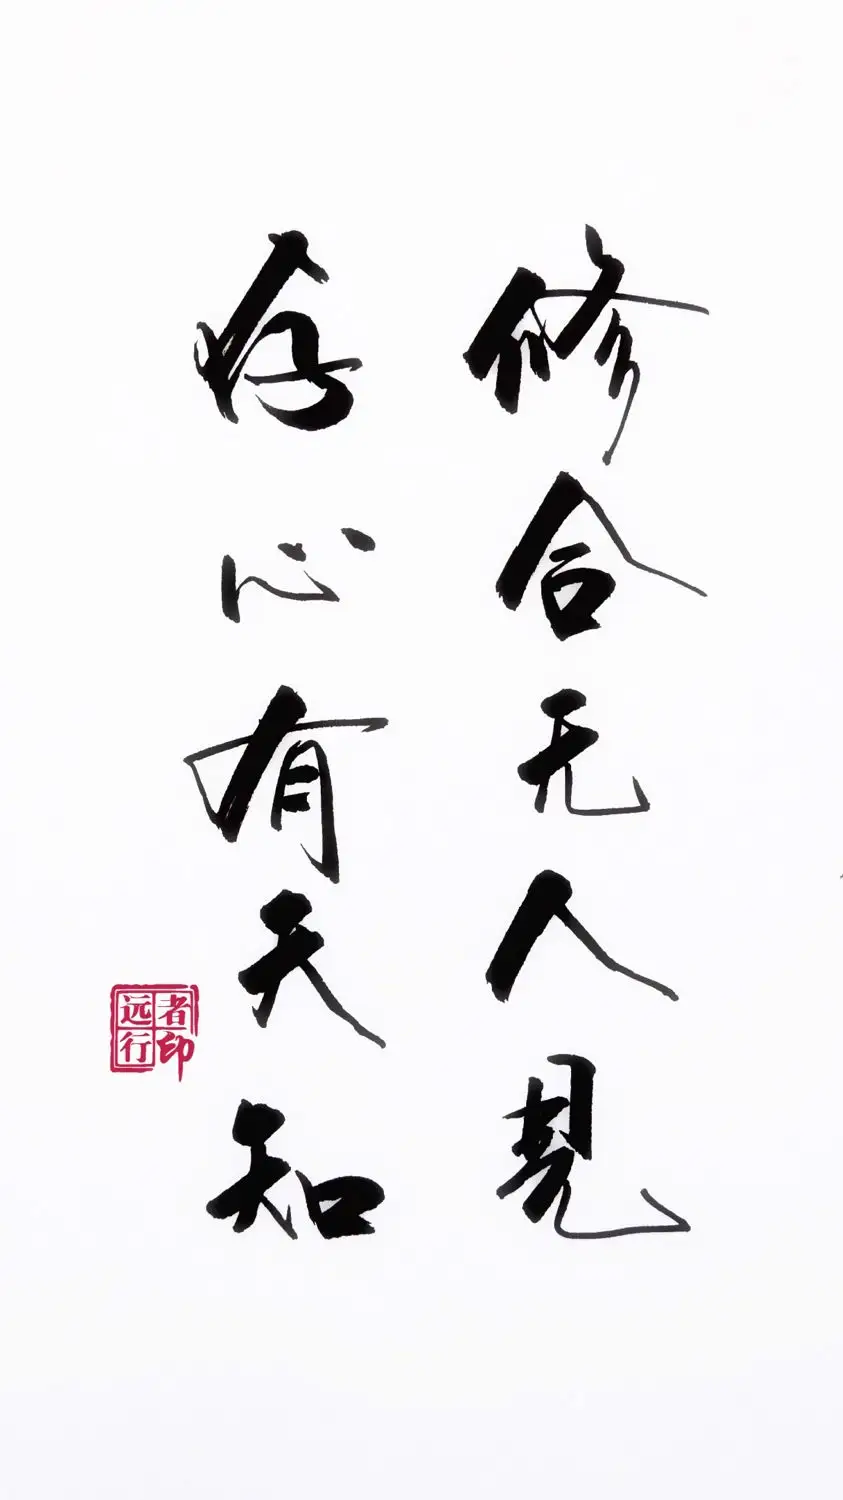 修合无人見
存心有天知
远行
者印